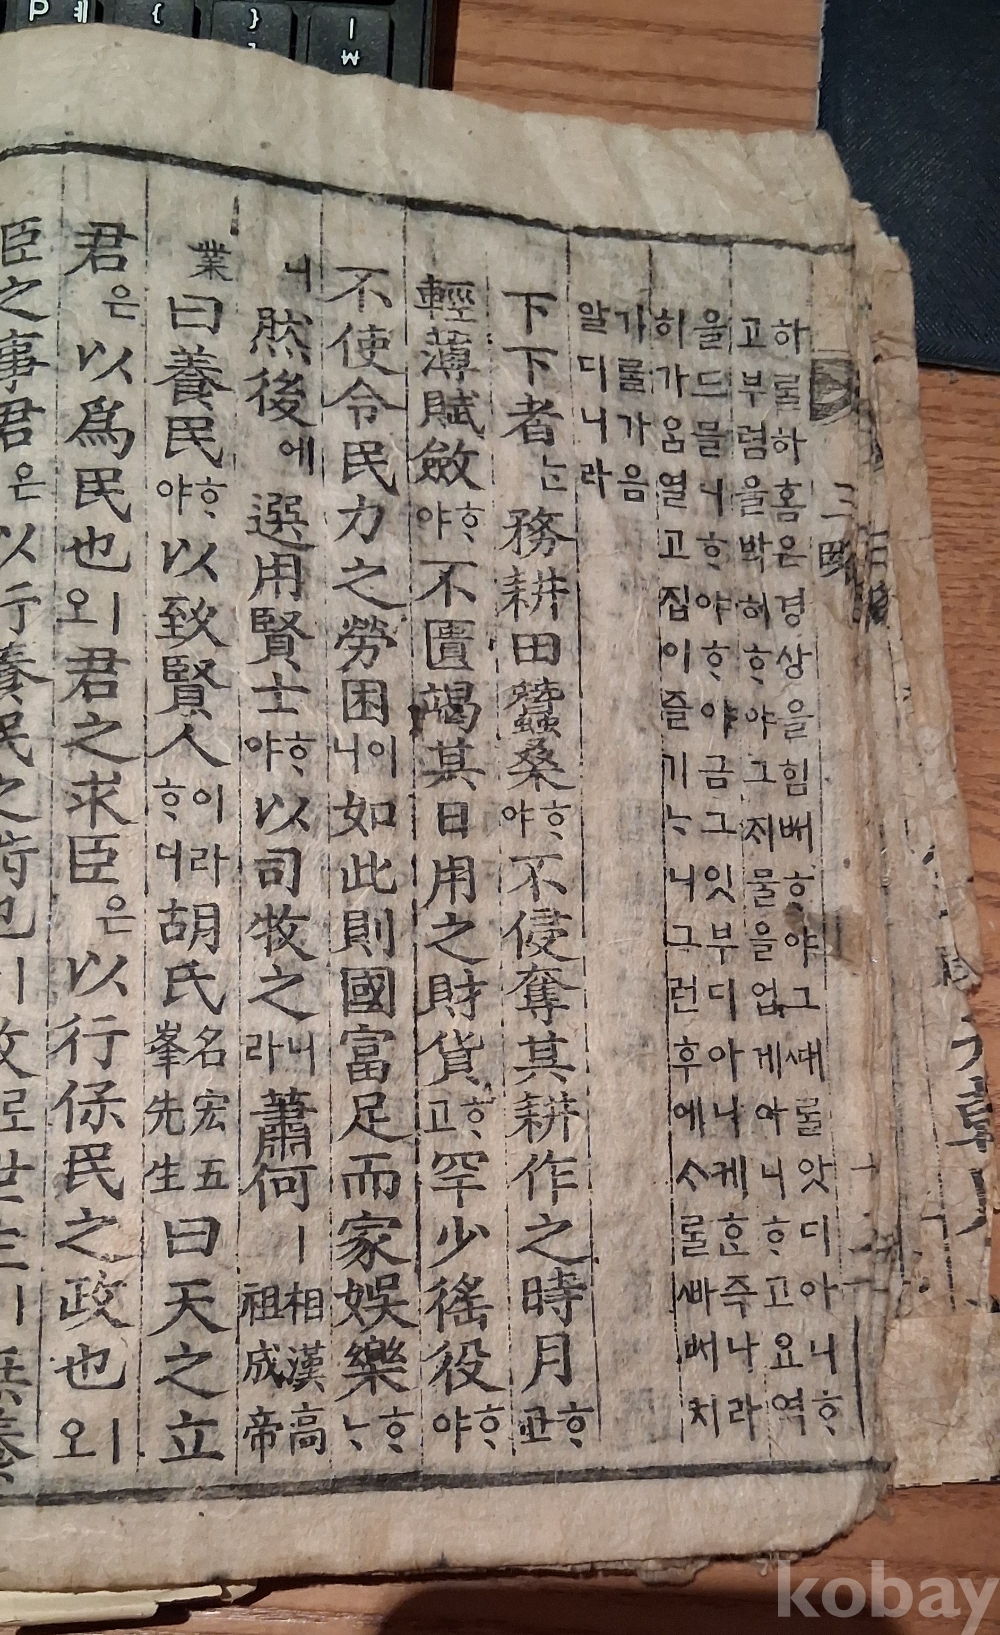 하롤하홈은경상을힘뻐ᄒᆞ야그ᄯᅢ롤앗디아니ᄒᆞ
고부렴을박히ᄒᆞ야그ᄌᆡ물을업게아니ᄒᆞ고요역
을드믈니ᄒᆞ야ᄒᆞ야금그잇부디아니케ᄒᆞᆫ즉나라
히가ᄋᆞᆷ열고집이즐기ᄂᆞ니그런후에ᄉᆞ롤ᄲᅡ뻐치
기롤가음
알디니라
下下者ᄂᆞᆫ務耕田蠶桑ᄒᆞ야不侵奪其耕作之時月ᄒᆞ고
輕薄賦斂ᄒᆞ야不匱竭其日用之財貨ᄒᆞ고罕少徭役ᄒᆞ야
不使令民力之勞困이니如此則國富足而家娛樂ᄒᆞᄂᆞ
니然後에選用賢士ᄒᆞ야以司牧之니라蕭何ㅣ相漢高祖成帝
業曰養民ᄒᆞ야以致賢人이라ᄒᆞ더니胡氏名宏五峯先生曰天之立
君은以爲民也외君之求臣은以行保民之政也외
臣之事君은以行養民之
三略
kobay